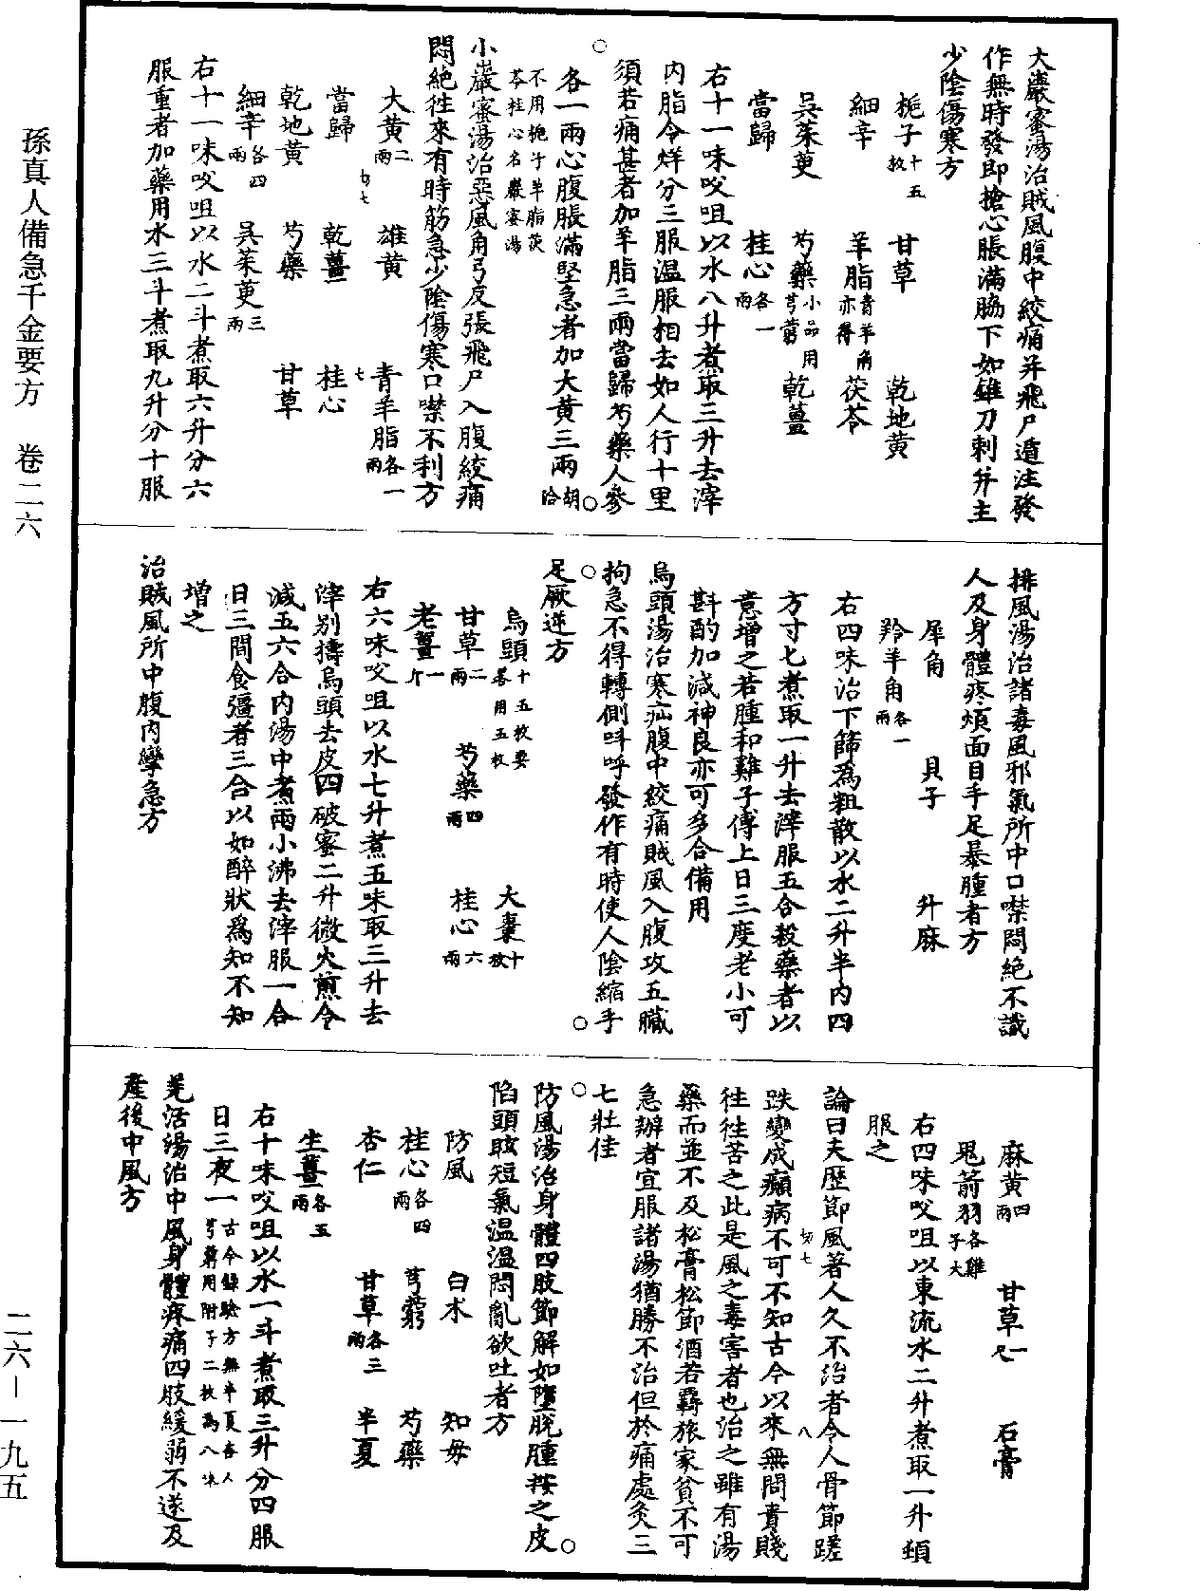 大巖蜜湯治賊風腹中絞痛并飛尸遁注發
作無時發即搶心脹滿脇下如錐刀刺并主
少陰傷寒方
梔子十五枚 甘草 乾地黃
細辛 羊脂青羊角亦得 茯苓
吳茱萸 芍藥小品用芎藭 乾薑
當歸 桂心各一兩
右十一味㕮咀以水八升煮取三升去滓
內脂令烊分三服溫服相去如人行十里
須若痛甚者加羊脂三兩當歸芍藥人參
各一兩心腹脹滿堅急者加大黃三兩胡洽
不用梔子羊脂茯苓桂心名巖蜜湯
小巖蜜湯治惡風角弓反張飛尸入腹絞痛
悶絕往來有時筋急少陰傷寒口噤不利方
大黃二兩 雄黃 青羊脂各一兩
當歸 乾薑 桂心
乾地黃 芍藥 甘草
細辛各四兩 吳茱萸三兩
右十一味㕮咀以水二斗煮取六升分六
服重者加藥用水三斗煮取九升分十服
排風湯治諸毒風邪氣所中口噤悶絕不識
人及身體疼煩面目手足暴腫者方
犀角 貝子 升麻
羚羊角各一兩
右四味治下篩為粗散以水二升半內四
方寸匕煮取一升去滓服五合殺藥者以
意增之若腫和雞子傅上日三度老小可
斟酌加減神良亦可多合備用
烏頭湯治寒疝腹中絞痛賊風入腹攻五臟
拘急不得轉側叫呼發作有時使人陰縮手
足厥逆方
烏頭十五枚要畧用五枚 大棗十枚
甘草二兩 芍藥四兩 桂心六兩
老薑一斤
右六味㕮咀以水七升煮五味取三升去
滓別擣烏頭去皮四破蜜二升微火煎令
減五六合內湯中煮兩小沸去滓服一合
日三間食彊者三合以如醉狀為知不知
增之
治賊風所中腹內攣急方
麻黃四兩 甘草一尺 石膏
鬼箭羽各雞子大
右四味㕮咀以東流水二升煮取一升頓
服之
論曰夫歷節風著人久不治者令人骨節蹉
跌變成癲病不可不知古今以來無問貴賤
往往苦之此是風之毒害者也治之雖有湯
藥而並不及松膏松節酒若羈旅家貧不可
急辦者宜服諸湯猶勝不治但於痛處灸三
七壯佳
防風湯治身體四肢節解如墮脫腫按之皮
陷頭眩短氣溫溫悶亂欲吐者方
防風 白朮 知母
桂心各四兩 芎藭 芍藥
杏仁 甘草各三兩 半夏
生薑各五兩
右十味㕮咀以水一斗煮取三升分四服
日三夜一古今錄驗方無半夏杏人芎藭用附子二枚為八味
羌活湯治中風身體疼痛四肢緩弱不遂及
產後中風方
孫真人備急千金要方 卷二六
二六－一九五